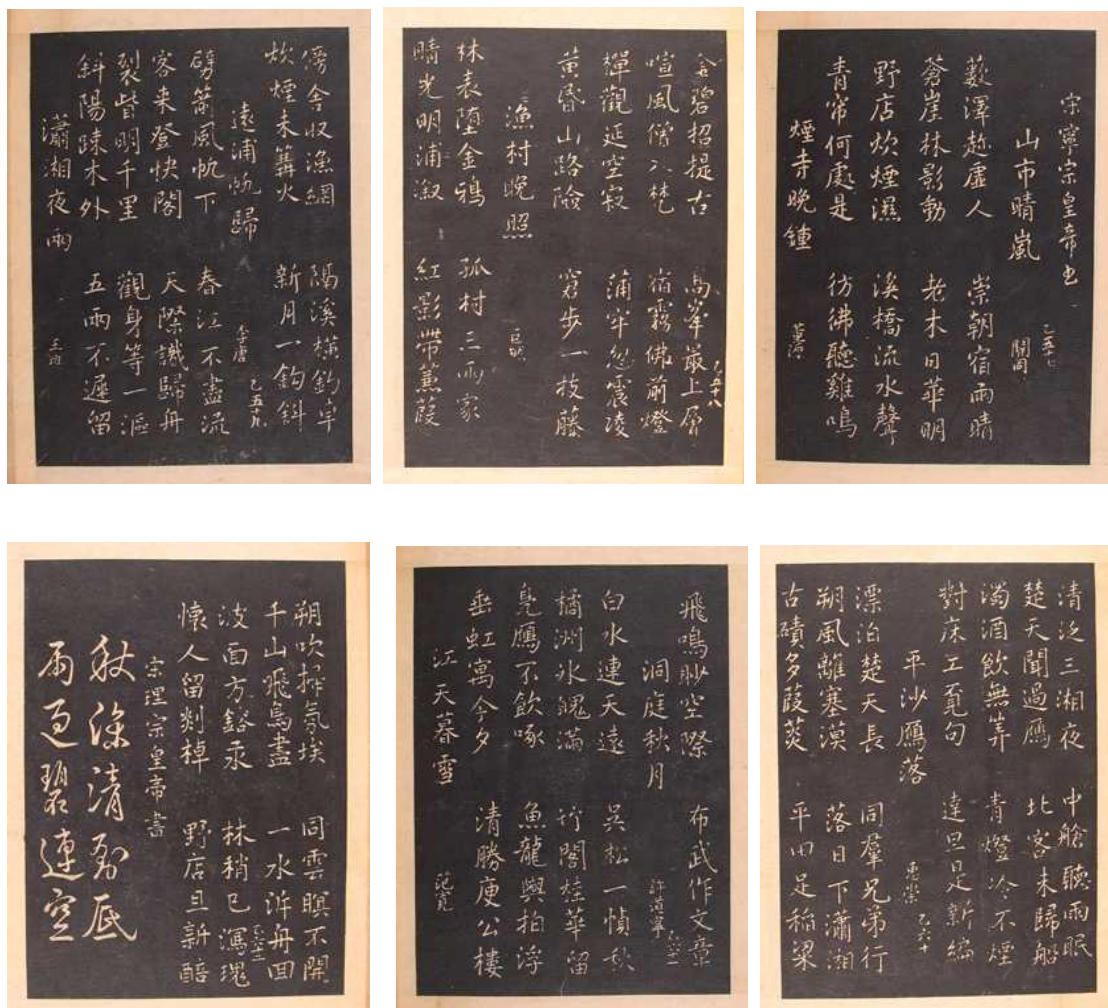 宋寧宗皇帝書
山市晴嵐 關同 乙五十七
藪澤趂虛人 崇朝宿雨晴
蒼崖林影動 老木日華明
野店炊煙濕 溪橋流水聲
青帘何處是 彷彿聽雞鳴
煙寺晚鍾 董源
金碧招提古 高峯最上層 乙五十八
喧風僧入梵 宿霧佛前燈
禪觀延空寂 蒲牢忽震凌
黃昏山路險 窮步一枝藤
漁村晚照 巨然
林表墮金鴉 孤村三兩家
晴光明浦漵 紅影帶蒹葭
傍舍收漁網 隔溪橫釣車
炊煙未篝火 新月一鈎斜
遠浦帆歸 李唐 乙五十九
劈箭風帆下 春江不盡流
客來登快閣 天際識歸舟
裂眥明千里 觀身等一漚
斜陽疎木外 五兩不遲留
瀟湘夜雨
清泛三湘夜 中艙聽雨眠
楚天聞過鴈 北客未歸船
濁酒飲無筭 青燈冷不煙
對床工覓句 達旦是新編
平沙鴈落 惠崇 乙六十
漂泊楚天長 同羣兄弟行
朔風離塞漠 落日下瀟湘
古磧多葭菼 平田足稻粱
飛鳴眇空際 布武作文章
洞庭秋月 許道寧 乙六十一
白水連天遠 吳松一幀秋
橘洲冰魄滿 竹閣桂華留
鳧鴈不飲啄 魚龍與拍浮
垂虹寓今夕 清勝庾公樓
江天暮雪 范寬
朔吹掃氛埃 同雲暝不開
千山飛鳥盡 一水泝舟回
波面方鎔汞 林梢已瀉瑰
懷人留剡棹 野店且新醅
宋理宗皇帝書
秋深清到底
雨過碧連空